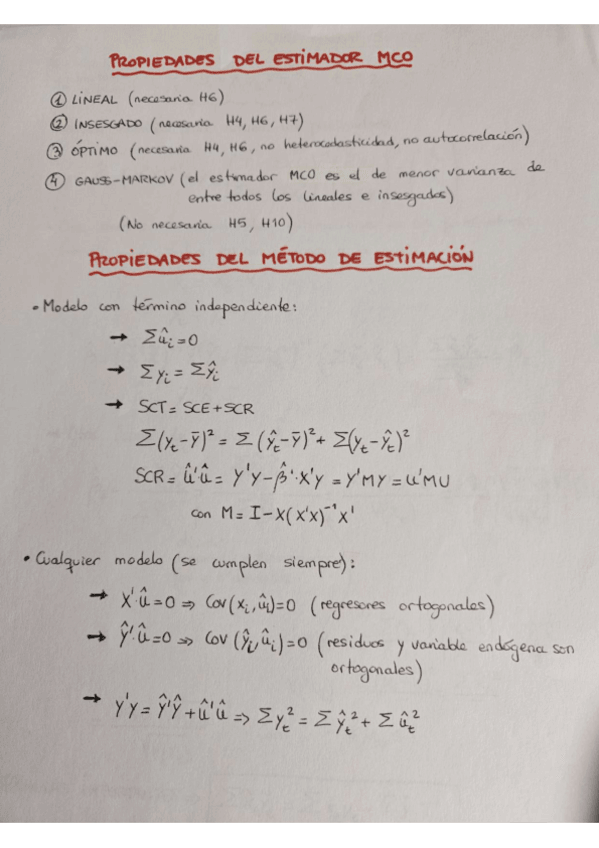 PROPIEDADES DEL ESTIMADOR MCO
① LINEAL (necesaria H6)
② INSESGADO (necesaria H4, H6, H7)
③ ÓPTIMO (necesaria H4, H6, no heterocedasticidad, no autocorrelación)
④ GAUSS-MARKOV (el estimador MCO es el de menor varianza de
entre todos los lineales e insesgados)
(No necesaria H5, H10)
PROPIEDADES DEL MÉTODO DE ESTIMACIÓN
• Modelo con término independiente:
→ Σûᵢ=0
→ Σyᵢ = Σŷᵢ
→ SCT = SCE + SCR
Σ(yₜ-ȳ)² = Σ(ŷₜ-ȳ)² + Σ(yₜ-ŷₜ)²
SCR = û'û = Y'Y - β̂'·X'Y = Y'MY = U'MU
con M = I - X(X'X)⁻¹X'
• Cualquier modelo (se cumplen siempre):
→ X'·û=0 ⇒ Cov(xᵢ,ûᵢ)=0 (regresores ortogonales)
→ Ŷ'·û=0 ⇒ Cov(ŷᵢ,ûᵢ)=0 (residuos y variable endógena son
ortogonales)
→ Y'Y = Ŷ'Ŷ + û'û ⇒ Σyₜ² = Σŷₜ² + Σûₜ²